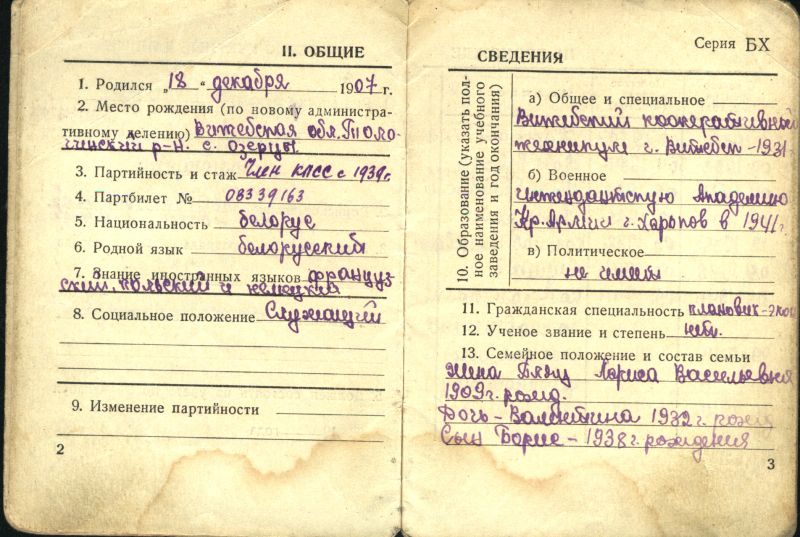 II. ОБЩИЕ
1. Родился „18“ декабря 1907 г.
2. Место рождения (по новому администра-
тивному делению) Витебская обл. Толо-
чинский р-н. с. Озерцы
3. Партийность и стаж Член КПСС с 1939г.
4. Партбилет № 08339163
5. Национальность белорус
6. Родной язык белорусский
7. Знание иностранных языков француз-
ский, польский и немецкий
8. Социальное положение Служащий
9. Изменение партийности
2
СВЕДЕНИЯ
Серия БХ
10. Образование (указать пол-
ное наименование учебного
заведения и год окончания)
а) Общее и специальное
Витебский кооперативный
техникум г. Витебск - 1931
б) Военное
Интендантскую Академию
Кр. Армии г. Харьков в 1941г.
в) Политическое
не имеет
11. Гражданская специальность плановик-экон
12. Ученое звание и степень нет.
13. Семейное положение и состав семьи
Жена Лариса Васильевна
1909г. рожд.
Дочь - Валентина 1932 г. рожд
Сын Борис - 1938 г. рождения
3